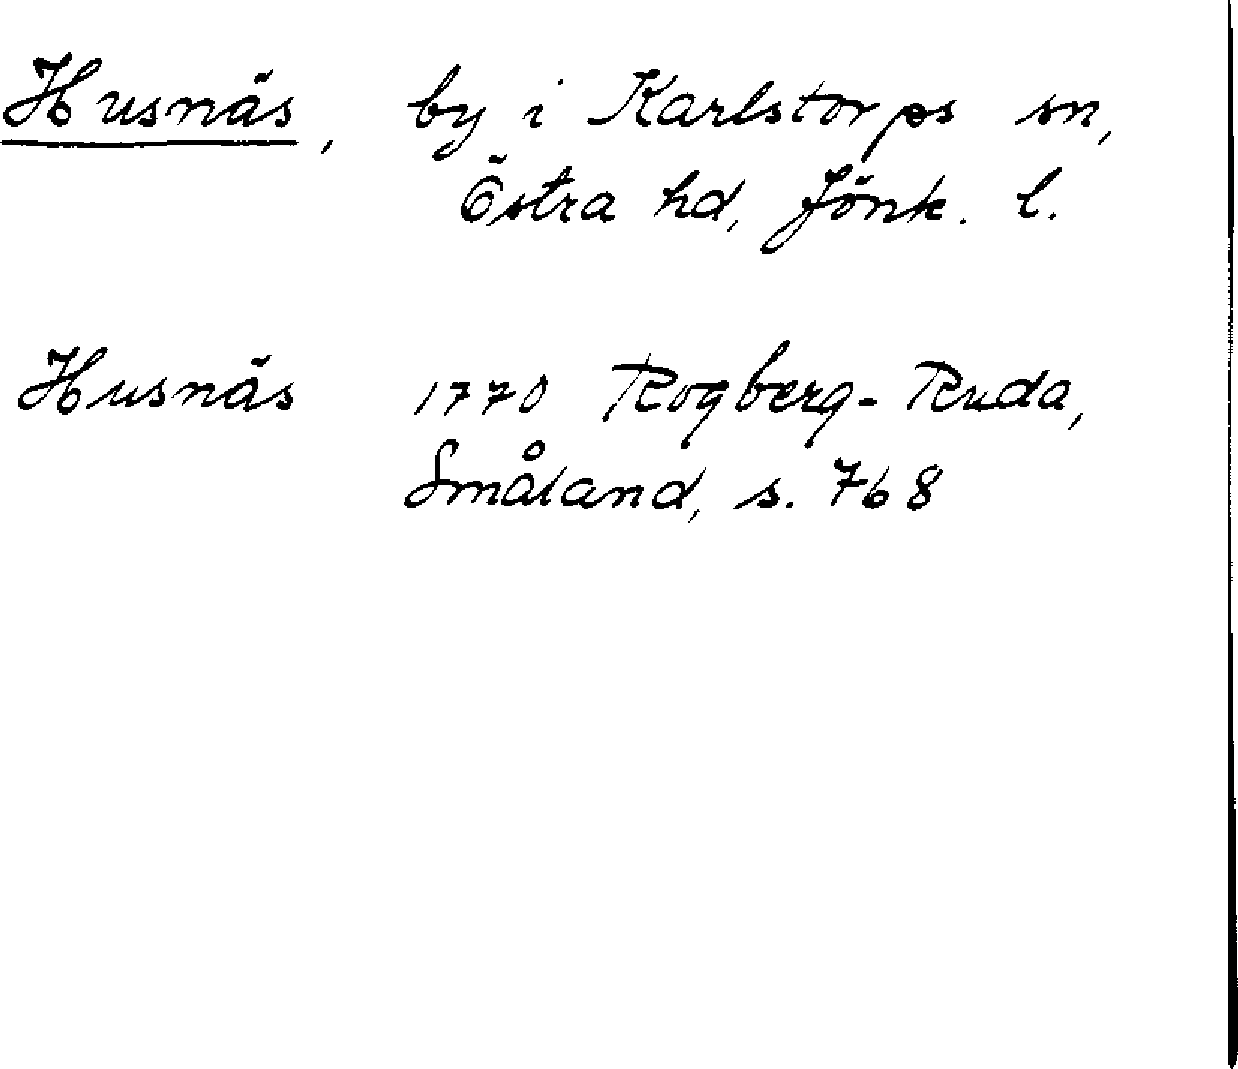 Husnäs, by i Karlstorps sn,
Östra hd, Jönk. l.
Husnäs 1770 Rogberg-Ruda,
Småland, s. 768